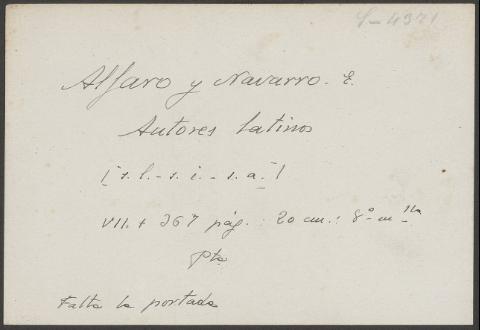 S-4371
Alfaro y Navarro. E.
Autores latinos
[s. l. - s. i. - s. a.]
VII. + 367 pág. : 20 cm. : 8º m lla
Pta
Falta la portada